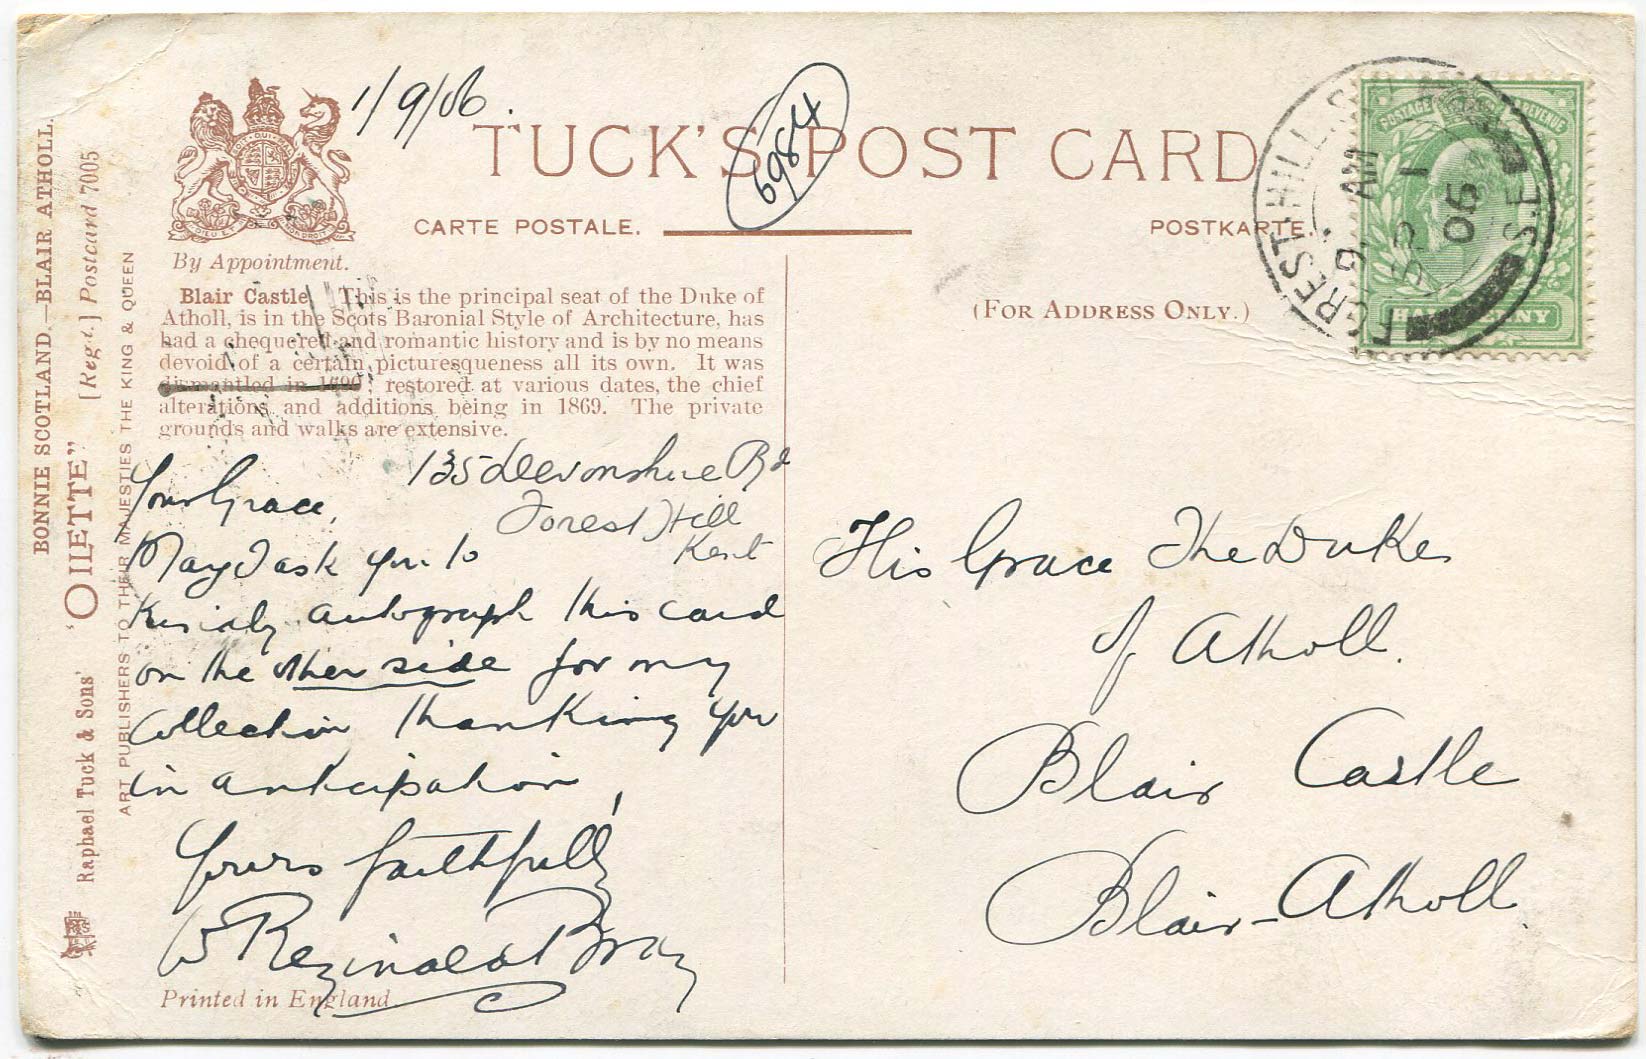 1/9/06.
TUCK'S POST CARD
6984
CARTE POSTALE.
POSTKARTE.
DIEU ET MON DROIT
By Appointment.
(FOR ADDRESS ONLY.)
Blair Castle. This is the principal seat of the Duke of
Atholl, is in the Scots Baronial Style of Architecture, has
had a chequered and romantic history and is by no means
devoid of a certain picturesqueness all its own. It was
dismantled in 1690; restored at various dates, the chief
alterations and additions being in 1869. The private
grounds and walks are extensive.
135 Devonshire Rd
Forest Hill
Kent
Your Grace,
May I ask you to
kindly autograph this card
on the other side for my
collection thanking you
in anticipation,
Yours faithfully
W Reginald Bray
Printed in England.
His Grace The Duke
of Atholl.
Blair Castle
Blair-Atholl.
BONNIE SCOTLAND.—BLAIR ATHOLL.
Raphael Tuck & Sons' "OILETTE" [Regd.] Postcard 7005
ART PUBLISHERS TO THEIR MAJESTIES THE KING & QUEEN
POSTAGE REVENUE
HALFPENNY
FOREST-HILL
S.E
AM
1
06